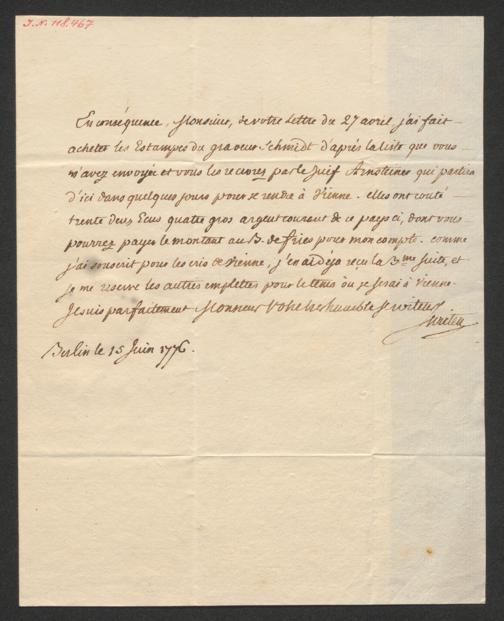 I.N. 118.467
En conséquence, Monsieur, de votre Lettre du 27 avril, j'ai fait
acheter les Estampes du graveur Schmidt d'après la liste que vous
m'avez envoyée et vous les recevrez par le Juif Arnsteiner qui partira
d'ici dans quelques jours pour se rendre à Vienne. elles ont couté
trente deux Ecus quatre gros argent courant de ce pays ci, dont vous
pourrez payer le montant au B. de fries pour mon compte. comme
j'ai souscrit pour les cris de Vienne, j'en ai déja reçu la 3me Suite, et
je me reserve les autres emplettes pour le tems où je serai à Vienne.
Je suis parfaitement Monsieur Votre tres humble Serviteur
Swieten
Berlin le 15 Juin 1776.